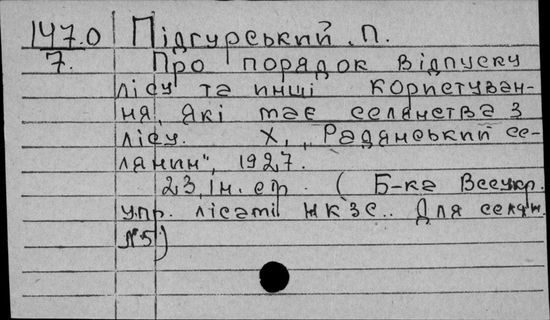 147.0 Підгурський. П.
7. Про порядок відпуску
лісу та инші користуван-
ня, які має селянства з
лісу. Х, „Радянський се-
лянин", 1927.
23, ін. стр. (Б-ка Всеукр.
упр. лісами НКЗС.. Для селян.
№5)